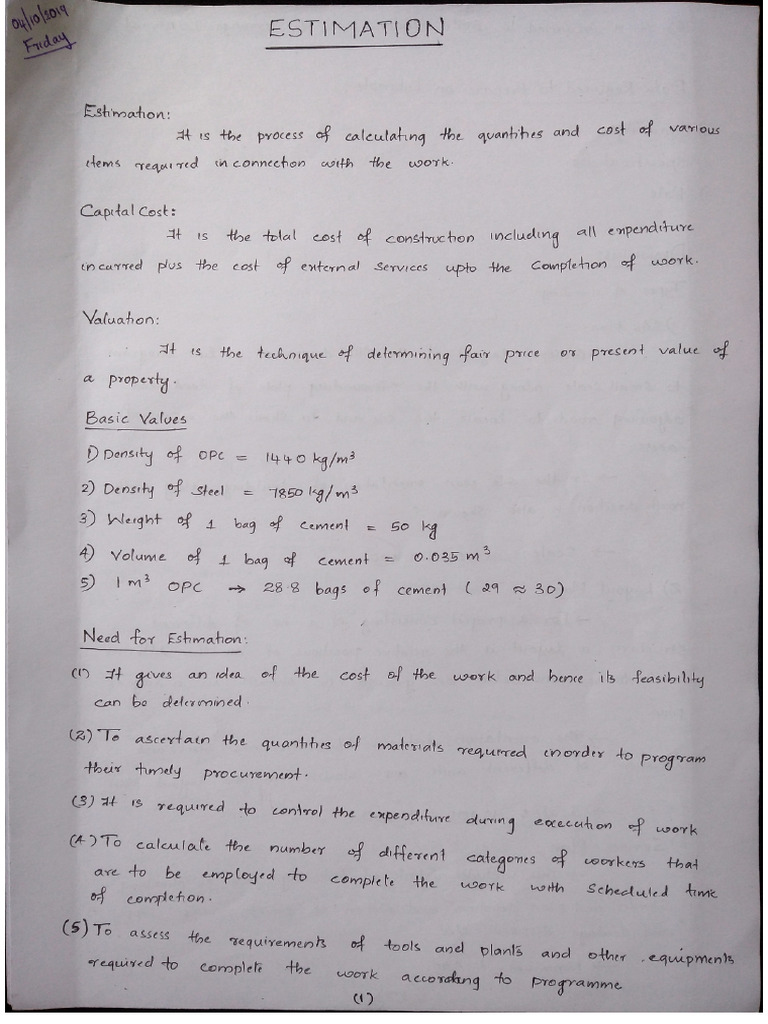 04/10/2019
Friday
ESTIMATION
Estimation:
It is the process of calculating the quantities and cost of various
items required in connection with the work.
Capital Cost:
It is the total cost of construction including all expenditure
incurred plus the cost of external services upto the completion of work.
Valuation:
It is the technique of determining fair price or present value of
a property.
Basic Values
1) Density of OPC = 1440 kg/m³
2) Density of steel = 7850 kg/m³
3) Weight of 1 bag of cement = 50 kg
4) Volume of 1 bag of cement = 0.035 m³
5) 1 m³ OPC → 28.8 bags of cement (29 ≈ 30)
Need for Estimation:
(1) It gives an idea of the cost of the work and hence its feasibility
can be determined.
(2) To ascertain the quantities of materials required inorder to program
their timely procurement.
(3) It is required to control the expenditure during execution of work
(4) To calculate the number of different categories of workers that
are to be employed to complete the work with scheduled time
of completion.
(5) To assess the requirements of tools and plants and other equipments
required to complete the work according to programme
(1)